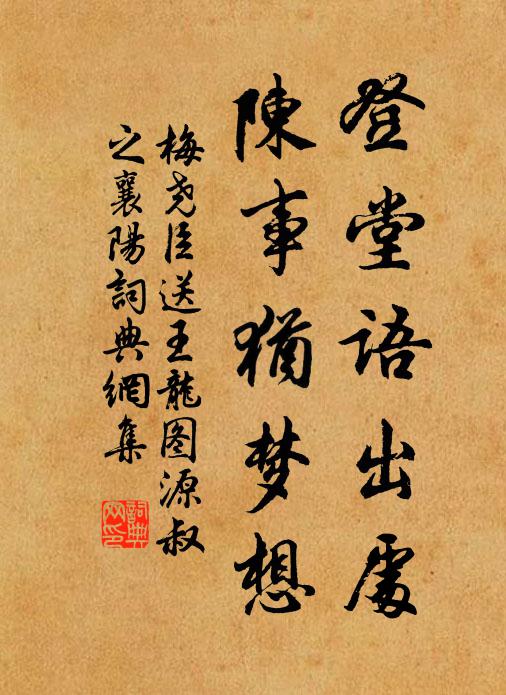 登堂語出處
陳事猶梦想
梅尧臣送王龍图源叔
之襄陽詞典網集
詞典
网印